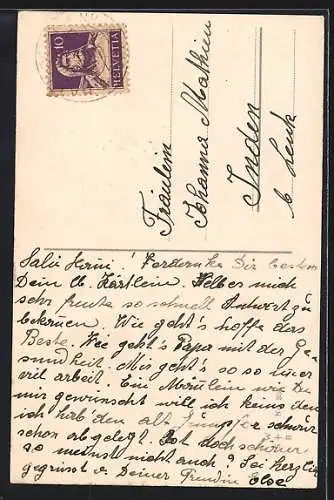 10
HELVETIA
Fräulein
Johanna Mathieu
Inden
b Leuk
Salü Hanni! Verdanke Dir bestens
Dein lb. Kärtlein. Selbes mich
sehr freute so schnell Antwort zu
bekomen. Wie geht's hoffe das
Beste. Wie geht's Papa mit der Ge-
sundheit. Mir geht's so so imer
viel arbeit. Ein
mir gewünscht will ich keins den
ich hab' den alt
schon abgelegt. Ist doch schöner
so meinst nicht auch? Sei Herzlich
gegrüsst v. Deiner Freundin Else